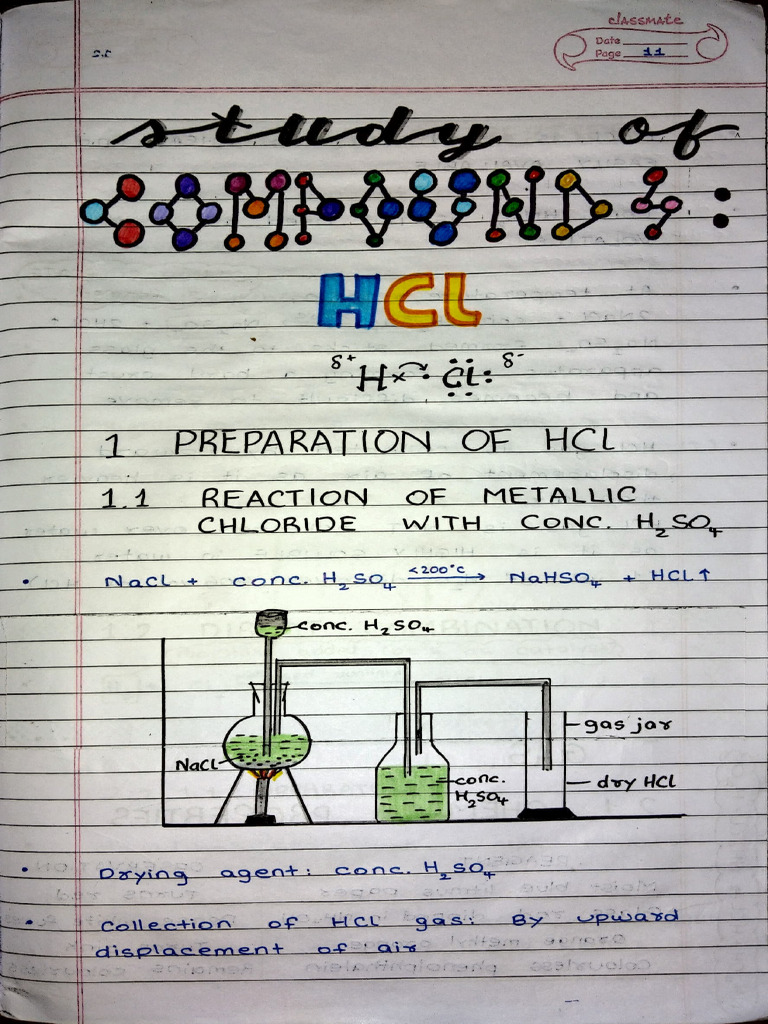 classmate
Date
Page 11
study of
COMPOUNDS:
HCL
δ+ H× ·Cl: δ-
1 PREPARATION OF HCL
1.1 REACTION OF METALLIC
CHLORIDE WITH CONC. H₂SO₄
• NaCl + conc. H₂SO₄ <200°C→ NaHSO₄ + HCL↑
conc. H₂SO₄
gas jar
NaCl
conc.
H₂SO₄
dry HCl
• Drying agent: conc. H₂SO₄
• Collection of HCL gas: By upward
displacement of air